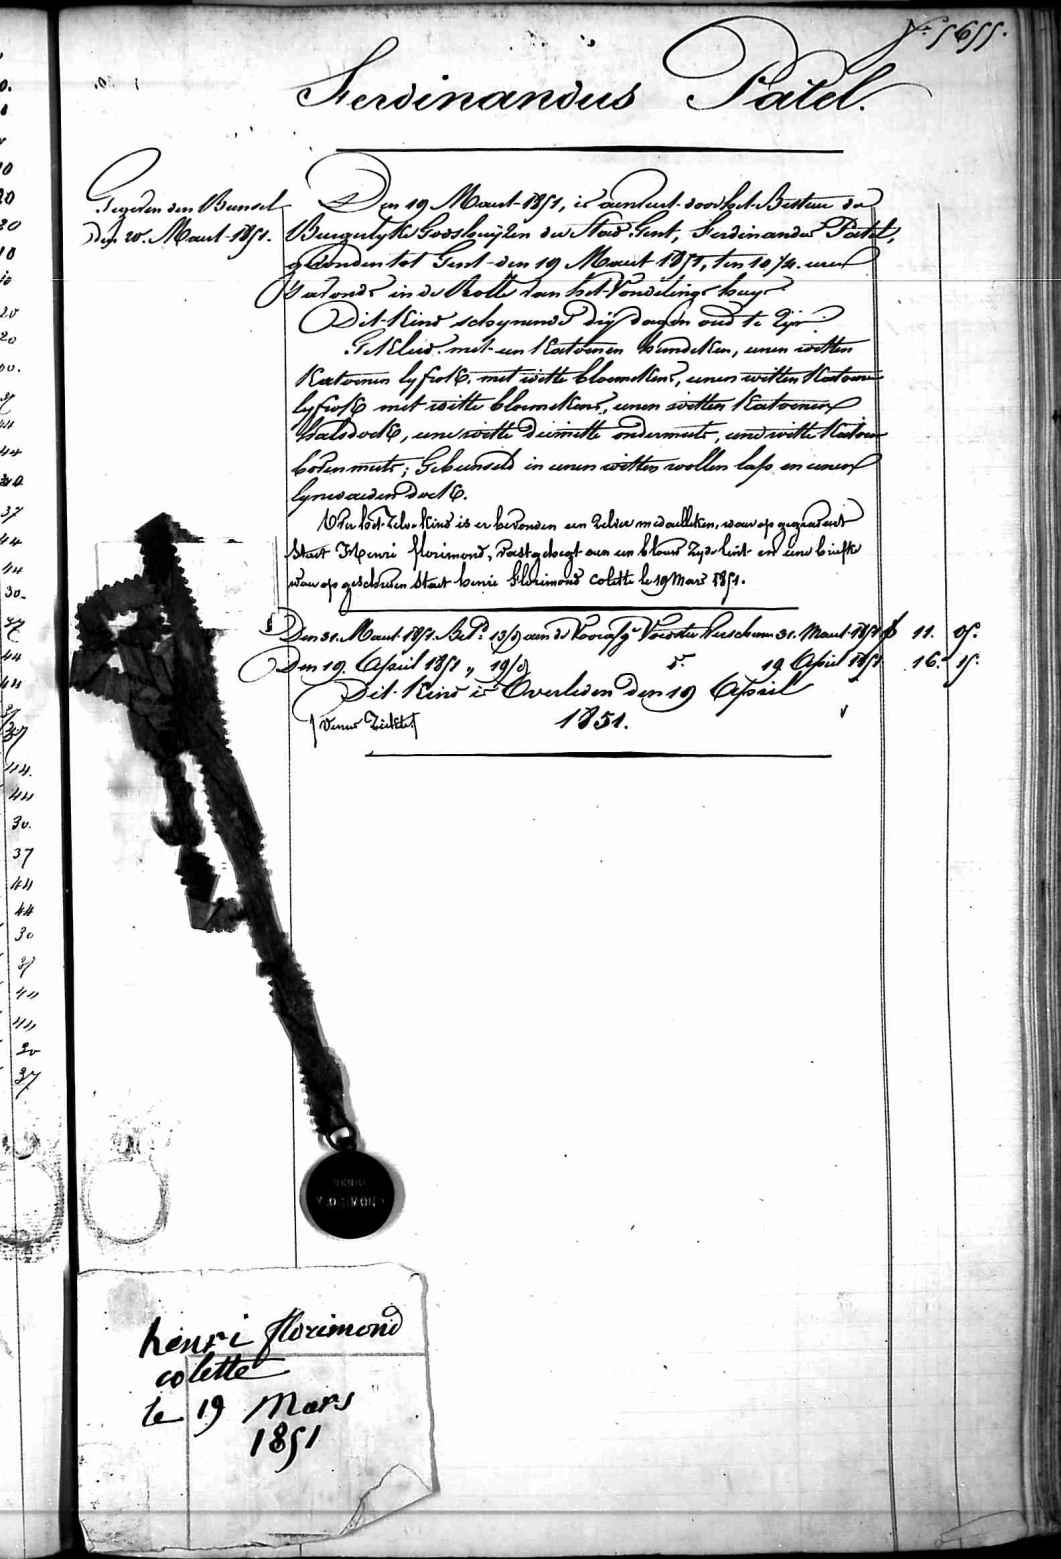 N.º 5655.
Ferdinandus Patel.
Gegeven den Bunsel
den 20. Maart 1851.
Den 19 Maart 1851, is aenveert door het Bestuer der
Burgerlyke Godshuyzen der Stad Gent, Ferdinandus Patel,
gevonden tot Gent den 19 Maart 1851, ten 10 ¼ uren
s'avonds in de Rolle van het Vondelings huys.
Dit Kind schynende dry dagen oud te zyn.
Gekleed met een Katoenen hemdeken, eenen witten
Katoenen lyfrok met witte bloemekens, eenen witten Katoenen
lyfrok met witte bloemekens, eenen witten Katoenen
halsdoek, eene witte dimitte ondermuts, eene witte Katoen
bovenmuts; Gebunseld in eenen witten wollen lap en eenen
lynwaeden doek.
Over het zelve Kind is er bevonden een zilver medaelleken, waer op gegraveert
staet Henri florimond, vastgehegt aen een blauw zyde lint en eene briefke
waer op geschreven staet henri florimond colette le 19 Mars 1851.
Den 31. Maart 1851. Bet.d 13/d aen de Voorsz. Voedster verschenen 31. Maart 1851 f 11. 05.
Den 19 April 1851 " 19/d d.º 19 April 1851 16. 15.
Dit Kind is Overleden den 19 April
1851.
HENRI
FLORIMOND
henri florimond
colette
le 19 Mars
1851